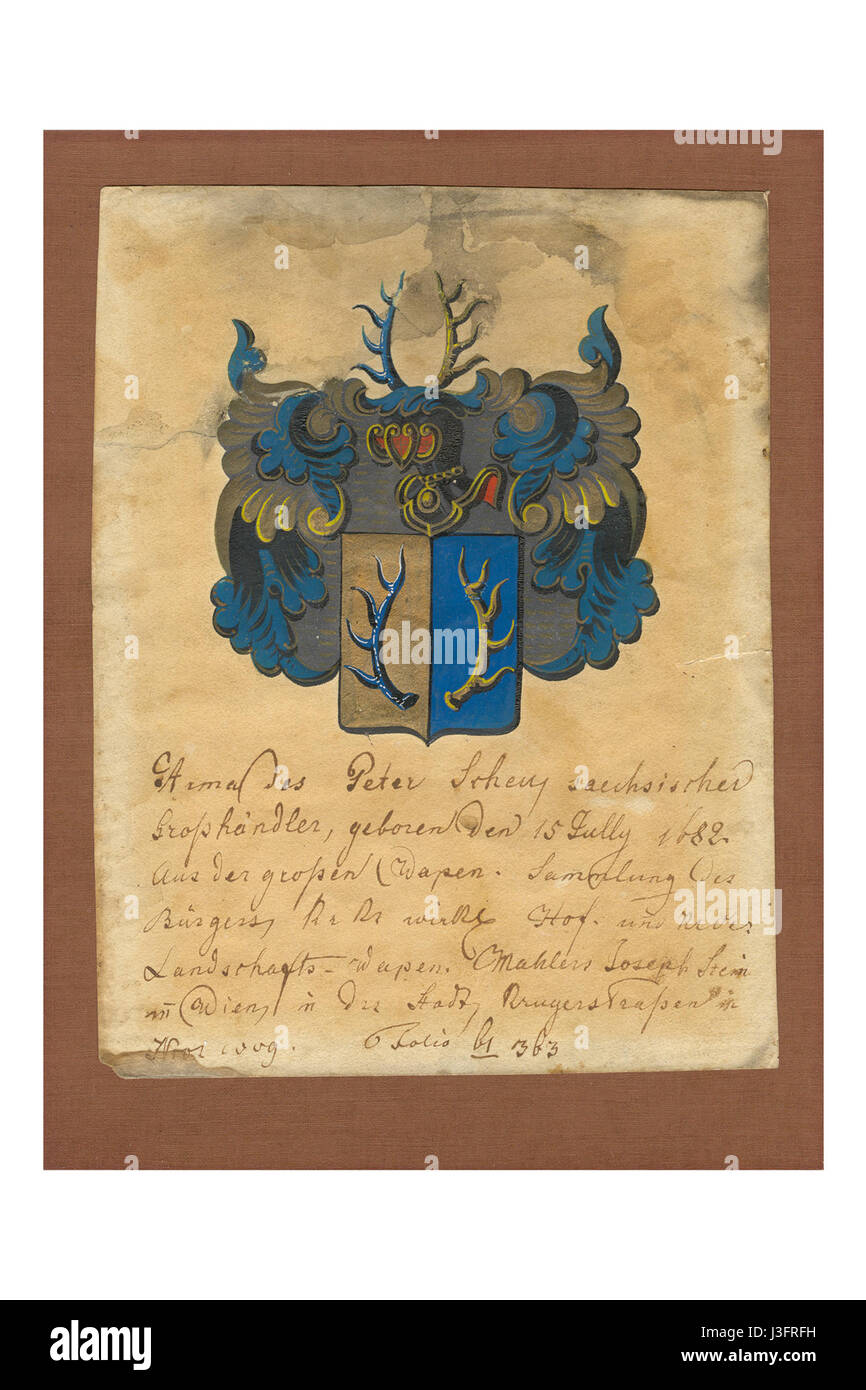 Arma des Peter Scheuy saechsischer
Großhändler, geboren den 15 Jully 1682.
Aus der großen Wapen. Sammlung des
Bürgers, K: K: wirkl Hof. und
Landschafts-Wapen. Mahlers Joseph Stein
in Wien, in der Stadt, Krugerstraßen in
Folio 61 363
a alamy stock photo
Image ID: J3FRFH
www.alamy.com